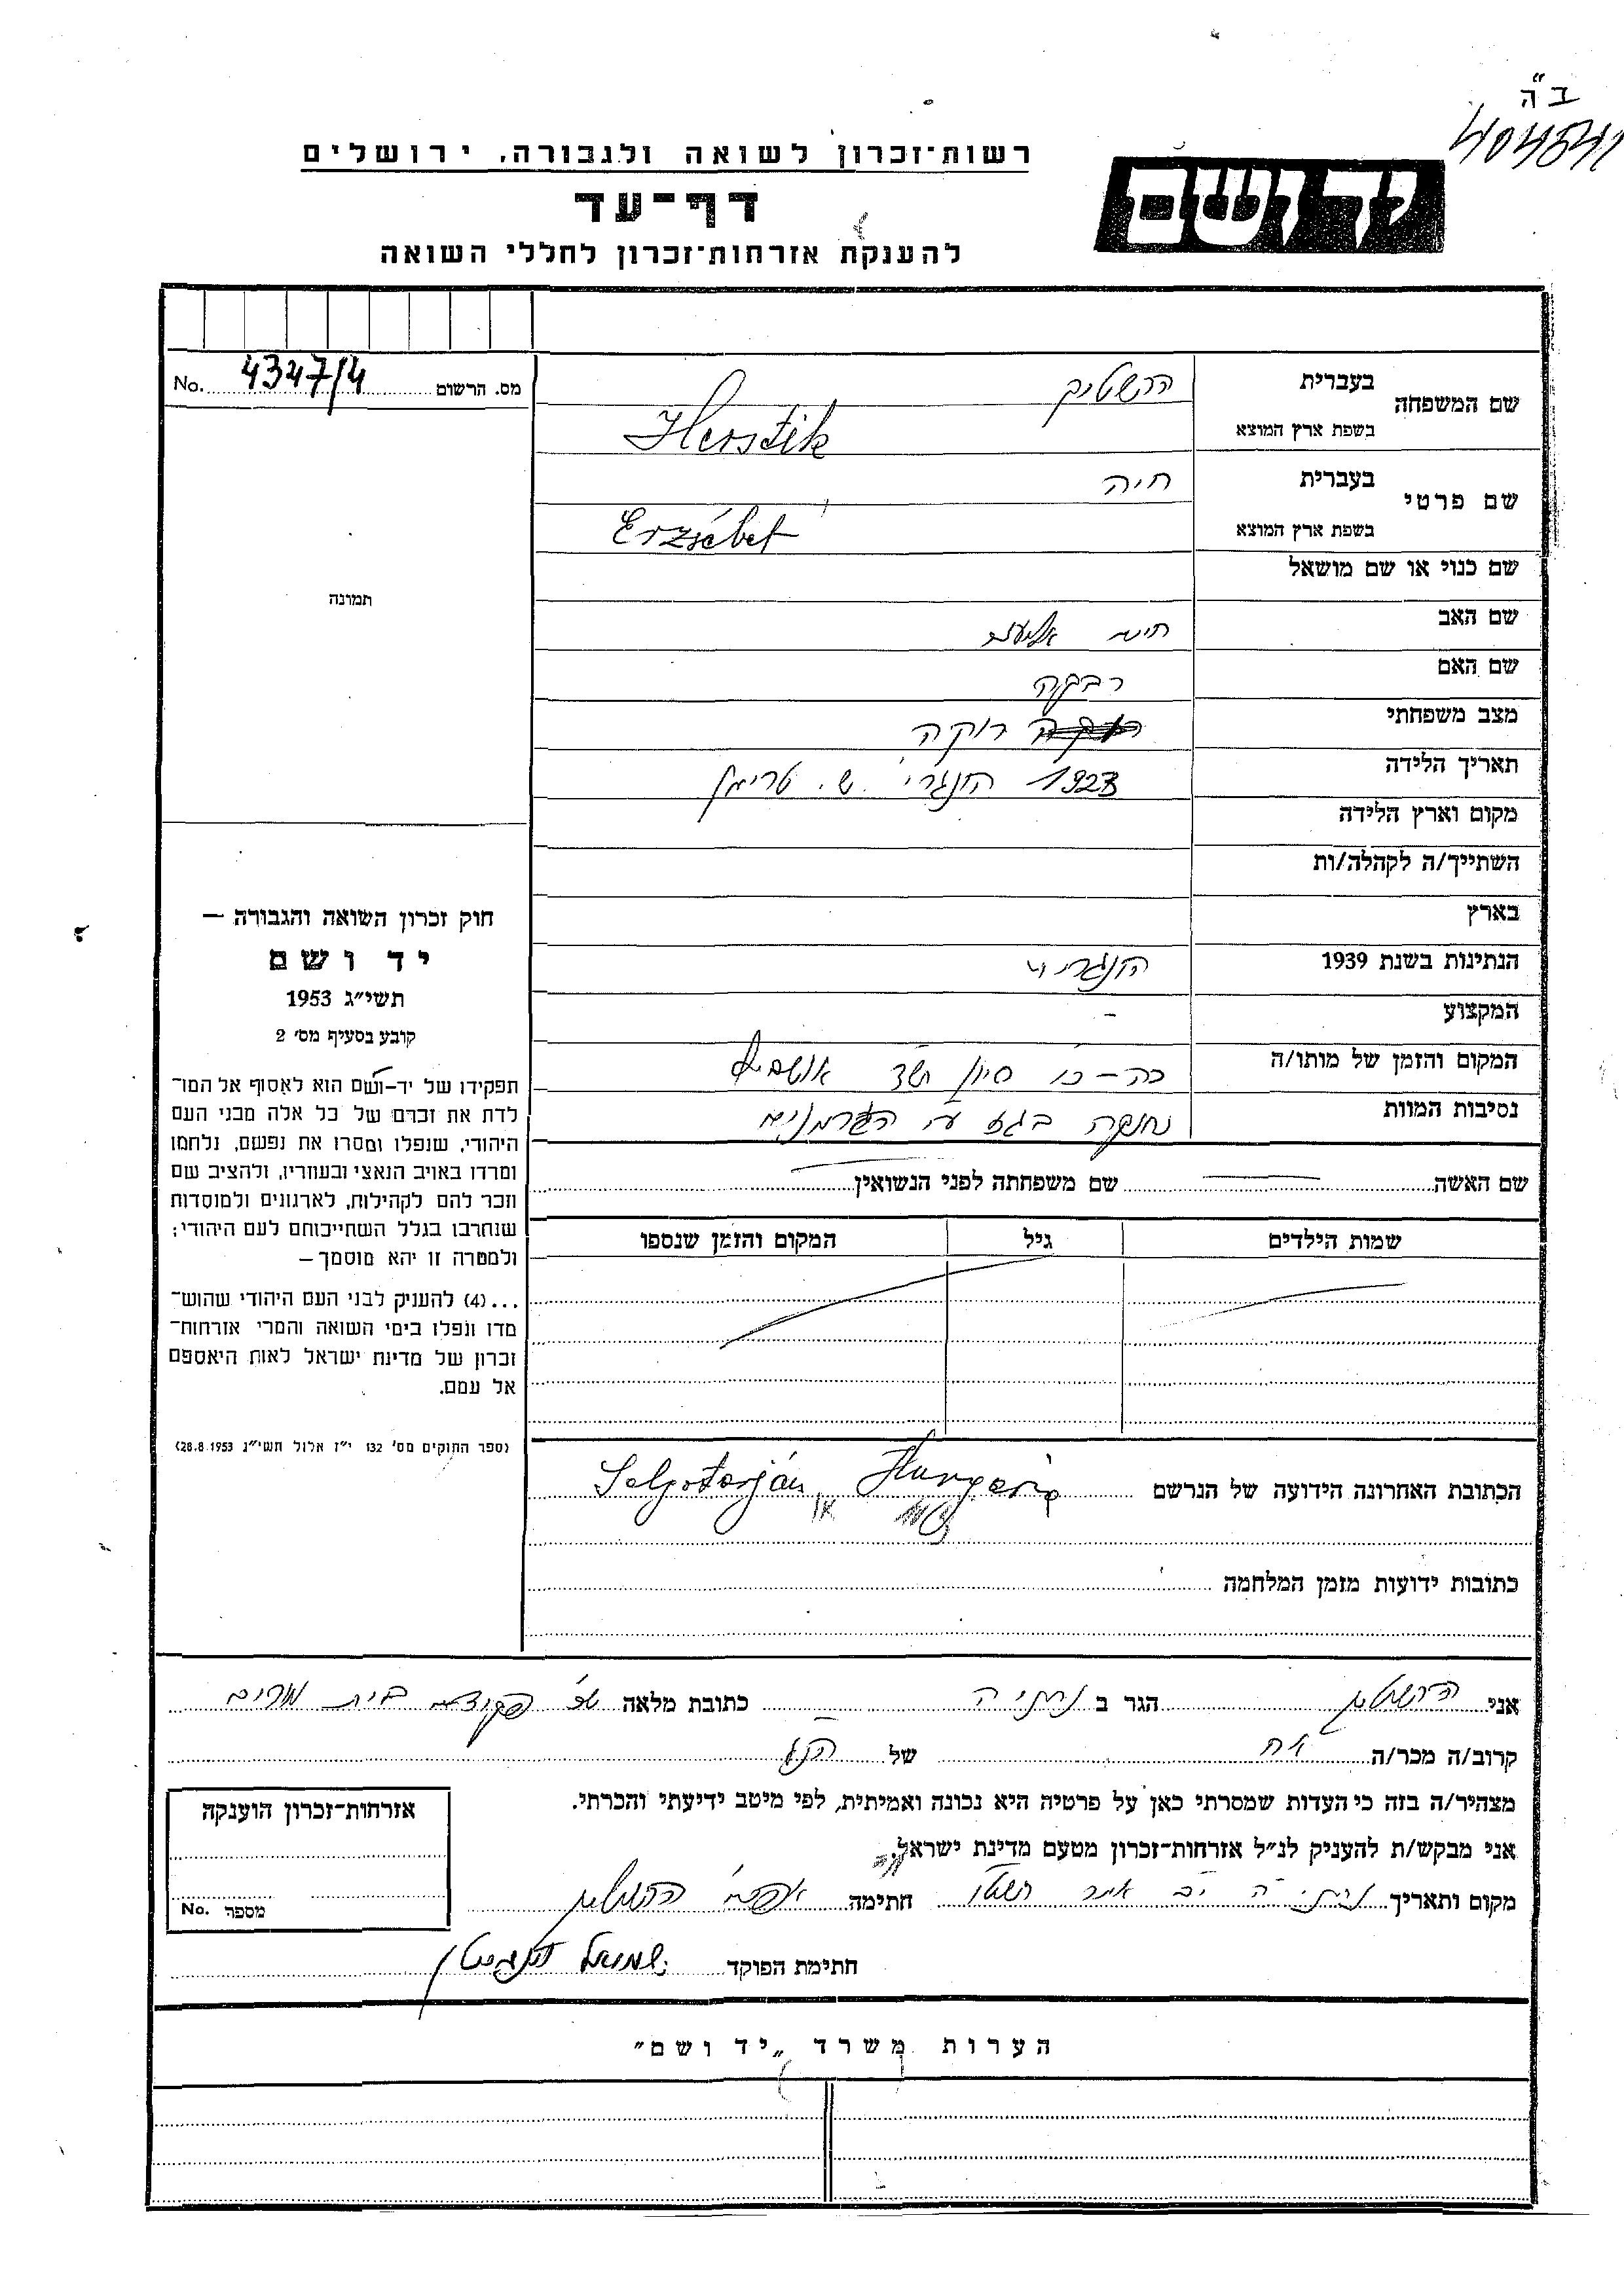 ב"ה
404541
ידושם
רשות־זכרון לשואה ולגבורה, ירושלים
דף־עד
להענקת אזרחות־זכרון לחללי השואה
מס. הרשום 4347/4 No.
תמונה
חוק זכרון השואה והגבורה —
יד ושם
תשי״ג 1953
קובע בסעיף מס׳ 2
תפקידו של יד-ושם הוא לאסוף אל המו־
לדת את זכרם של כל אלה מבני העם
היהודי, שנפלו ומסרו את נפשם, נלחמו
ומרדו באויב הנאצי ובעוזריו, ולהציב שם
וזכר להם לקהילות, לארגונים ולמוסדות
שנחרבו בגלל השתייכותם לעם היהודי;
ולמטרה זו יהא מוסמך —
...(4) להעניק לבני העם היהודי שהוש־
מדו ונפלו בימי השואה והמרי אזרחות־
זכרון של מדינת ישראל לאות היאספם
אל עמם.
(ספר החוקים מס׳ 132 י״ז אלול תשי״ג 28.8.1953)
שם המשפחה בעברית הרשטיק
בשפת ארץ המוצא Herstik
שם פרטי בעברית חיה
בשפת ארץ המוצא Erzsébet
שם כנוי או שם מושאל
שם האב חיים אליעזר
שם האם רבקה
מצב משפחתי רווקה
תאריך הלידה 1923 הונגרי׳
מקום וארץ הלידה
השתייך/ה לקהלה/ות
בארץ
הנתינות בשנת 1939
המקצוע -
המקום והזמן של מותו/ה כה - כו סיון תש״ד אושביץ
נסיבות המוות נחנקה בגז ע״י הגרמנים
שם האשה שם משפחתה לפני הנשואין
שמות הילדים גיל המקום והזמן שנספו
הכתובת האחרונה הידועה של הנרשם Salgotarján Hungaria
כתובות ידועות מזמן המלחמה
אני הרשטיק הגר ב נתניה כתובת מלאה
קרוב/ה מכר/ה אח של הנ״ל
מצהיר/ה בזה כי העדות שמסרתי כאן על פרטיה היא נכונה ואמיתית, לפי מיטב ידיעתי והכרתי.
אני מבקש/ת להעניק לנ״ל אזרחות־זכרון מטעם מדינת ישראל.
מקום ותאריך נתניה חתימה הרשטיק
חתימת הפוקד שמואל
אזרחות־זכרון הוענקה
מספר No.
הערות משרד „יד ושם״